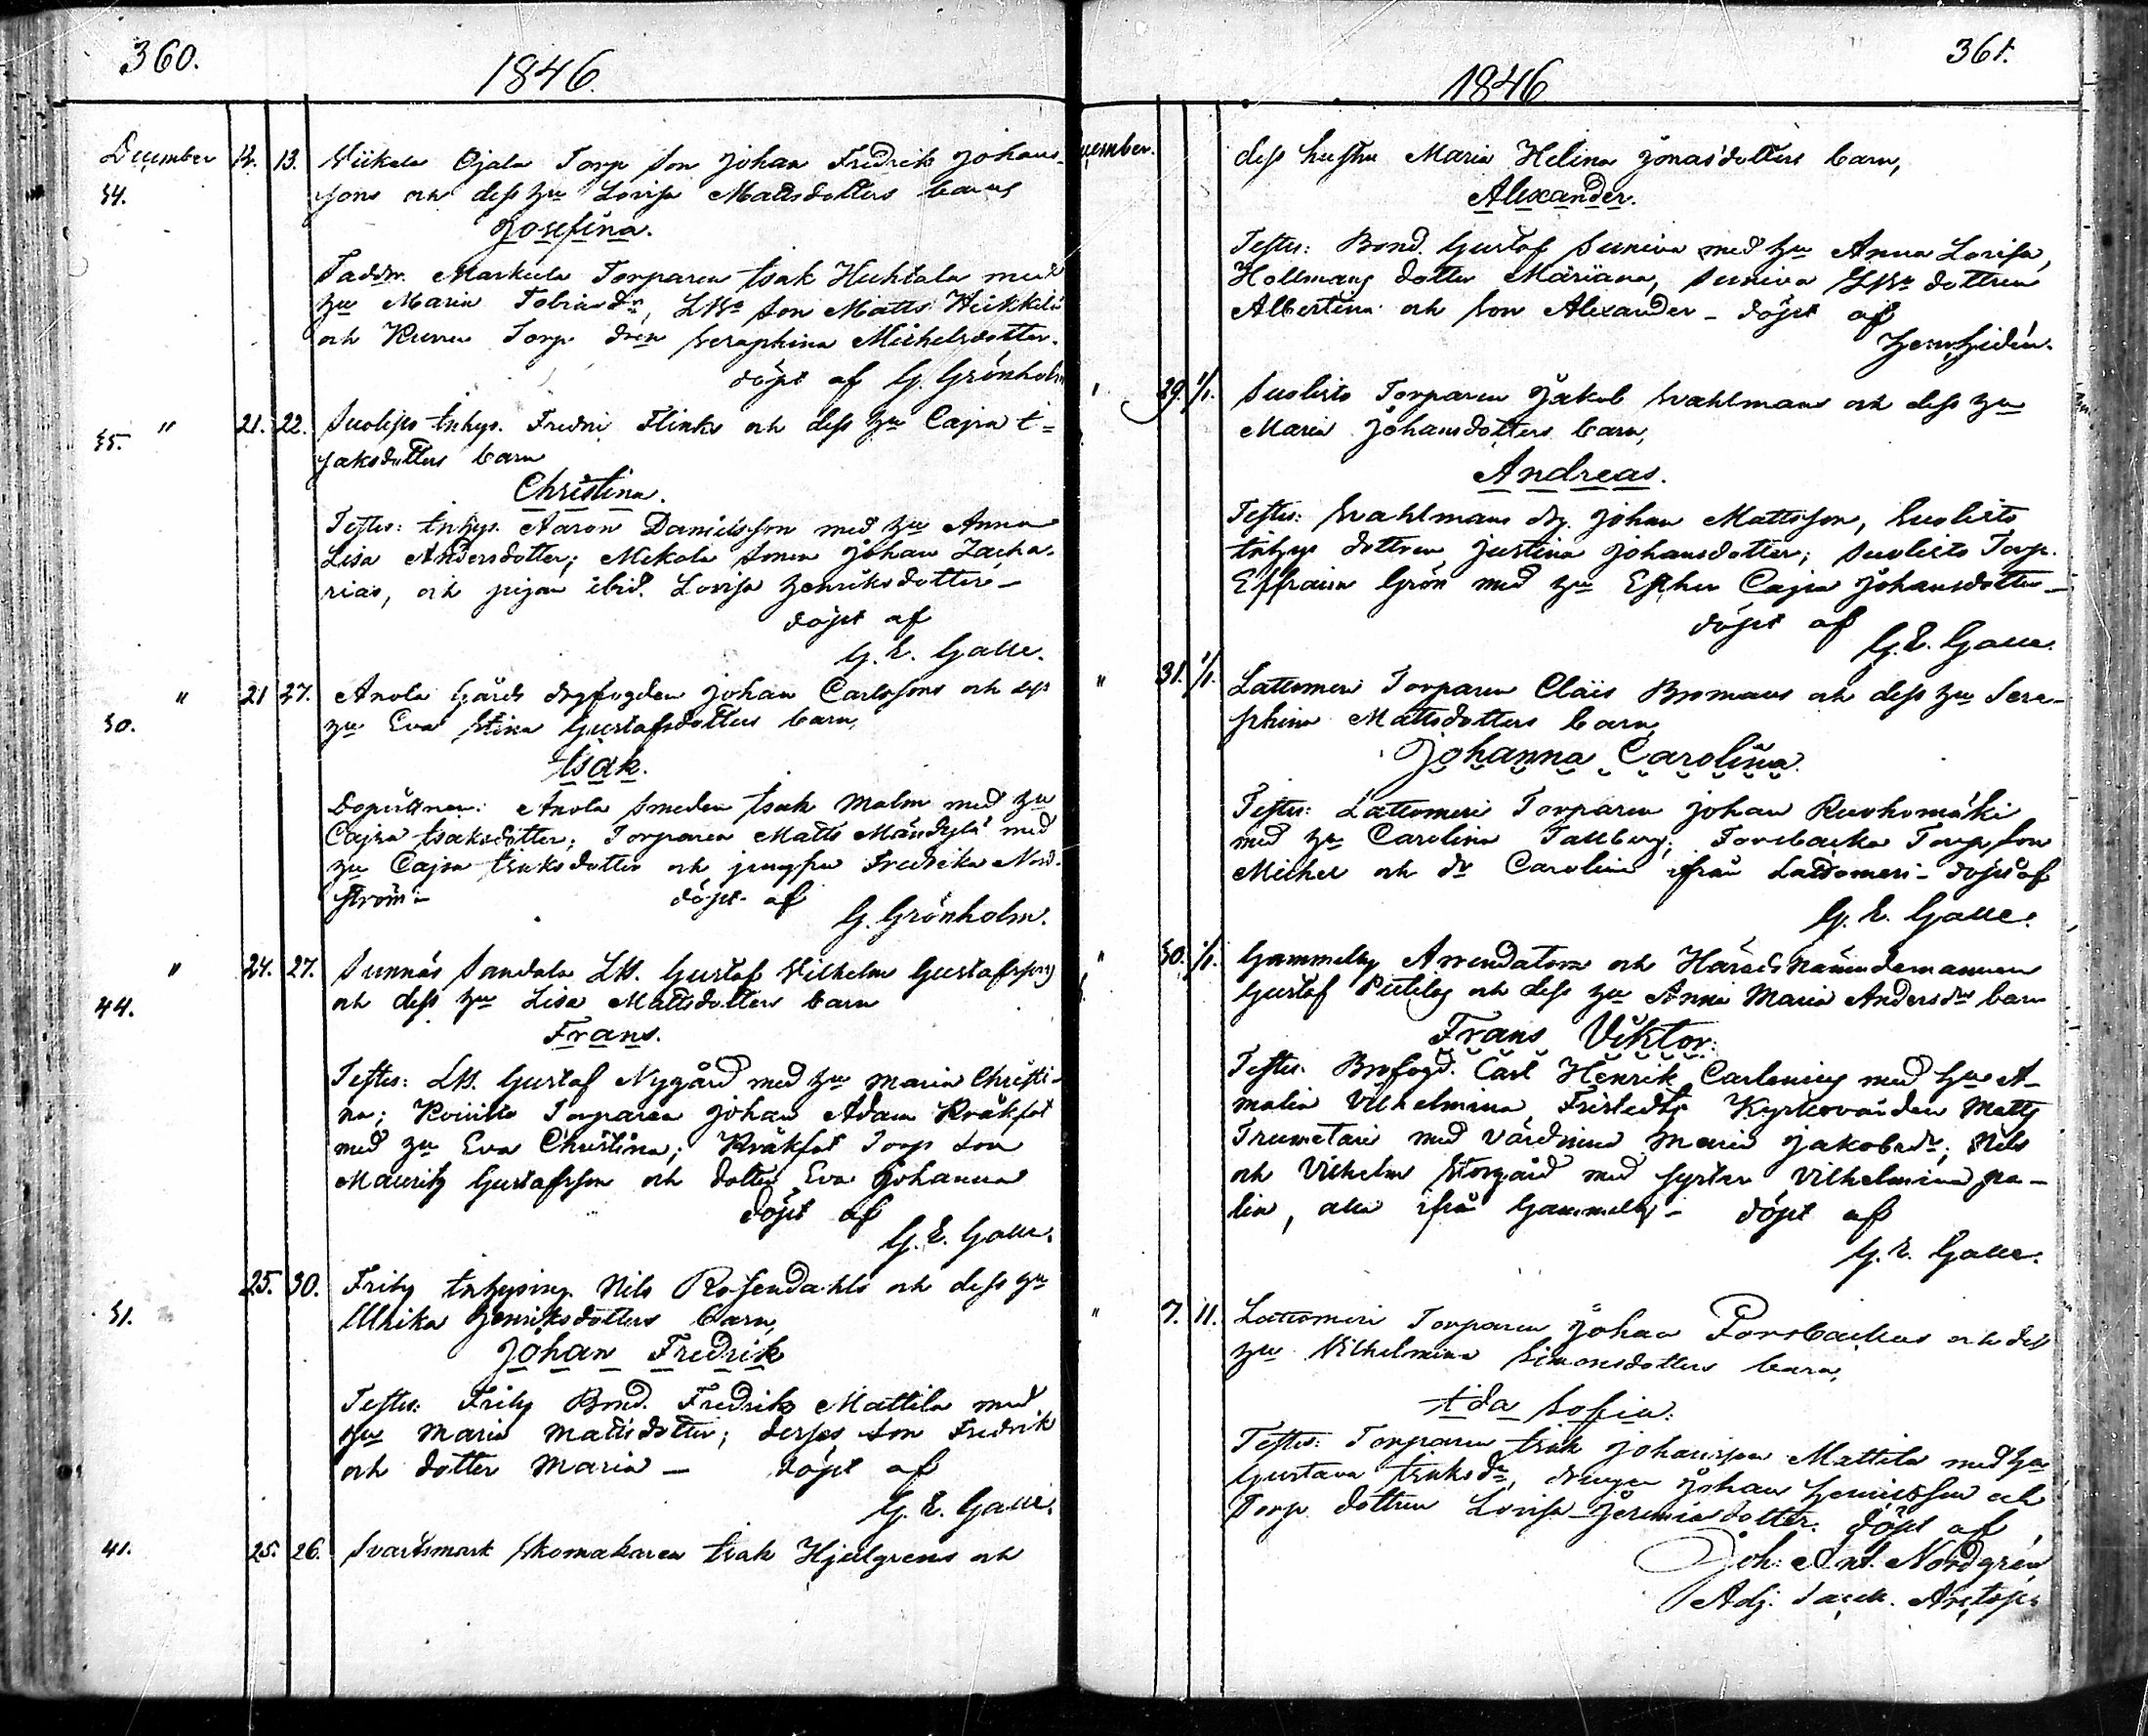 360.
1846.
December 12. 13. Viikala Ojala Torp Son Johan Fredrik Johans-
34. sons och dess Hu Lovisa Mattsdotters barn
Josefina.
Faddr. Markula Torparen Isak Huhtala med
Hu Maria Tobiasdr, LBo Son Matts Heikkilä
och Torp dren Seraphina Michelsdotter.
döpt af G. Grönholm
35. " 21. 22. Suolisto Inhys. Fredric Flinks och dess Hu Cajsa I=
saksdotters barn
Christina.
Testes: Inhys. Aaron Danielsson med Hu Anna
Lisa Andersdotter; Mekola Sonen Johan Zacha-
rias, och pigan ibid. Lovisa Henriksdotter -
döpt af
G. E. Galle.
30. " 21 27. Anola Gårds dragfogden Johan Carlssons och dess
Hu Eva Stina Gustafsdotters barn,
Isak.
Dopvittnen: Anola Smeden Isak Malm med Hu
Cajsa Isaksdotter; Torparen Matts Mändylä med
Hu Cajsa Isaksdotter och jungfru Fredrika Nord-
ström - döpt af
G. Grönholm.
" 24. 27. Sunnäs Sandala LB. Gustaf Vilhelm Gustafssons
44. och dess Hu Lisa Mattsdotters barn
Frans.
Testes: LB. Gustaf Nygård med Hu Maria Christi-
na; Koivisto Torparen Johan Adam Kråkfot
med Hu Eva Christina; Kråkfot Torp Son
Mauritz Gustafsson och dotter Eva Johanna
döpt af
G. E. Galle.
31. 25. 30. Friby Inhysing. Nils Rosendahls och dess Hu
Ulrika Henriksdotters barn,
Johan Fredrik
Testes: Friby Bond. Fredrik Mattila med
Hu Maria Mattsdotter; derjes son Fredrik
och dotter Maria - döpt af
G. E. Galle.
41. 25. 26. Svartsmark Skomakaren Isak Hjelgrens och
361.
1846
December. dess hustru Maria Helena Jonasdotters barn,
Alexander.
Testes: Bond. Gustaf Suniva med Hu Anna Lovisa,
Hollmans dotter Mariana, Suniva dottren
Albertina och Son Alexander - döpt af
Henr. Hidén.
" 29. 1/1. Suolisto Torparen Jakob Wahlmans och dess Hu
Maria Johansdotters barn,
Andreas.
Testes: Wahlmans drg. Johan Mattsson, Suolisto
Inhys dottren Justina Johansdotter; Suolisto Torp.
Effraim Grön med Hu Esther Cajsa Johansdotter -
döpt af
G. E. Galle.
" 31. 1/1. Lattomeri Torparen Claës Bromans och dess Hu Sera-
phina Mattsdotters barn,
Johanna Carolina.
Testes: Lattomeri Torparen Johan Ruohomäki
med Hu Carolina Tallberg; Forsbacka Torp, Son
Michel och dr Carolina ifrån Lattomeri - döpt af
G. E. Galle.
" 30. 1/1. Gammelby Arrendatorn och Härads Nämndemannen
Gustaf och dess Hu Anna Maria Andersdrs barn
Frans Viktor.
Testes. Brofogd. Carl Henrik Carlenius med Hu A-
malia Vilhelmina Fristedt, Kyrkovärden Matts
Trumetari med värdinna Maria Jakobsdr; Nils
och Vilhelm Storgård med syster Vilhelmina Ma-
lin, alla ifrån Gammelby - döpt af
G. E. Galle.
" 7. 11. Lattomeri Torparen Johan Forsbackas och dess
Hu Vilhelmina Simonsdotters barn,
Ida Sofia.
Testes: Torparen Isak Johansson Mattila med Hu
Gustava Isaksdr, drängen Johan Henriksson och
Torp dottren Lovisa Jeremiasdotter. döpt af
Joh: Ant. Nordgrén
Adj. Sacell.